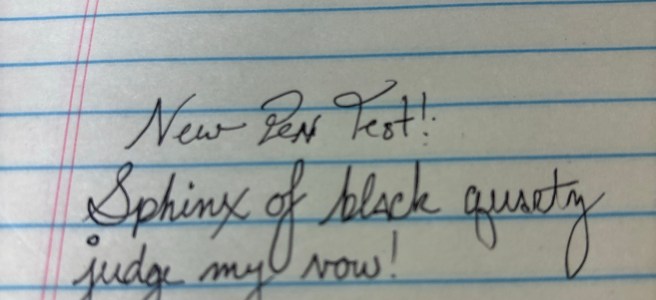 New Pen Test!
Sphinx of black qusrty
judge my vow!